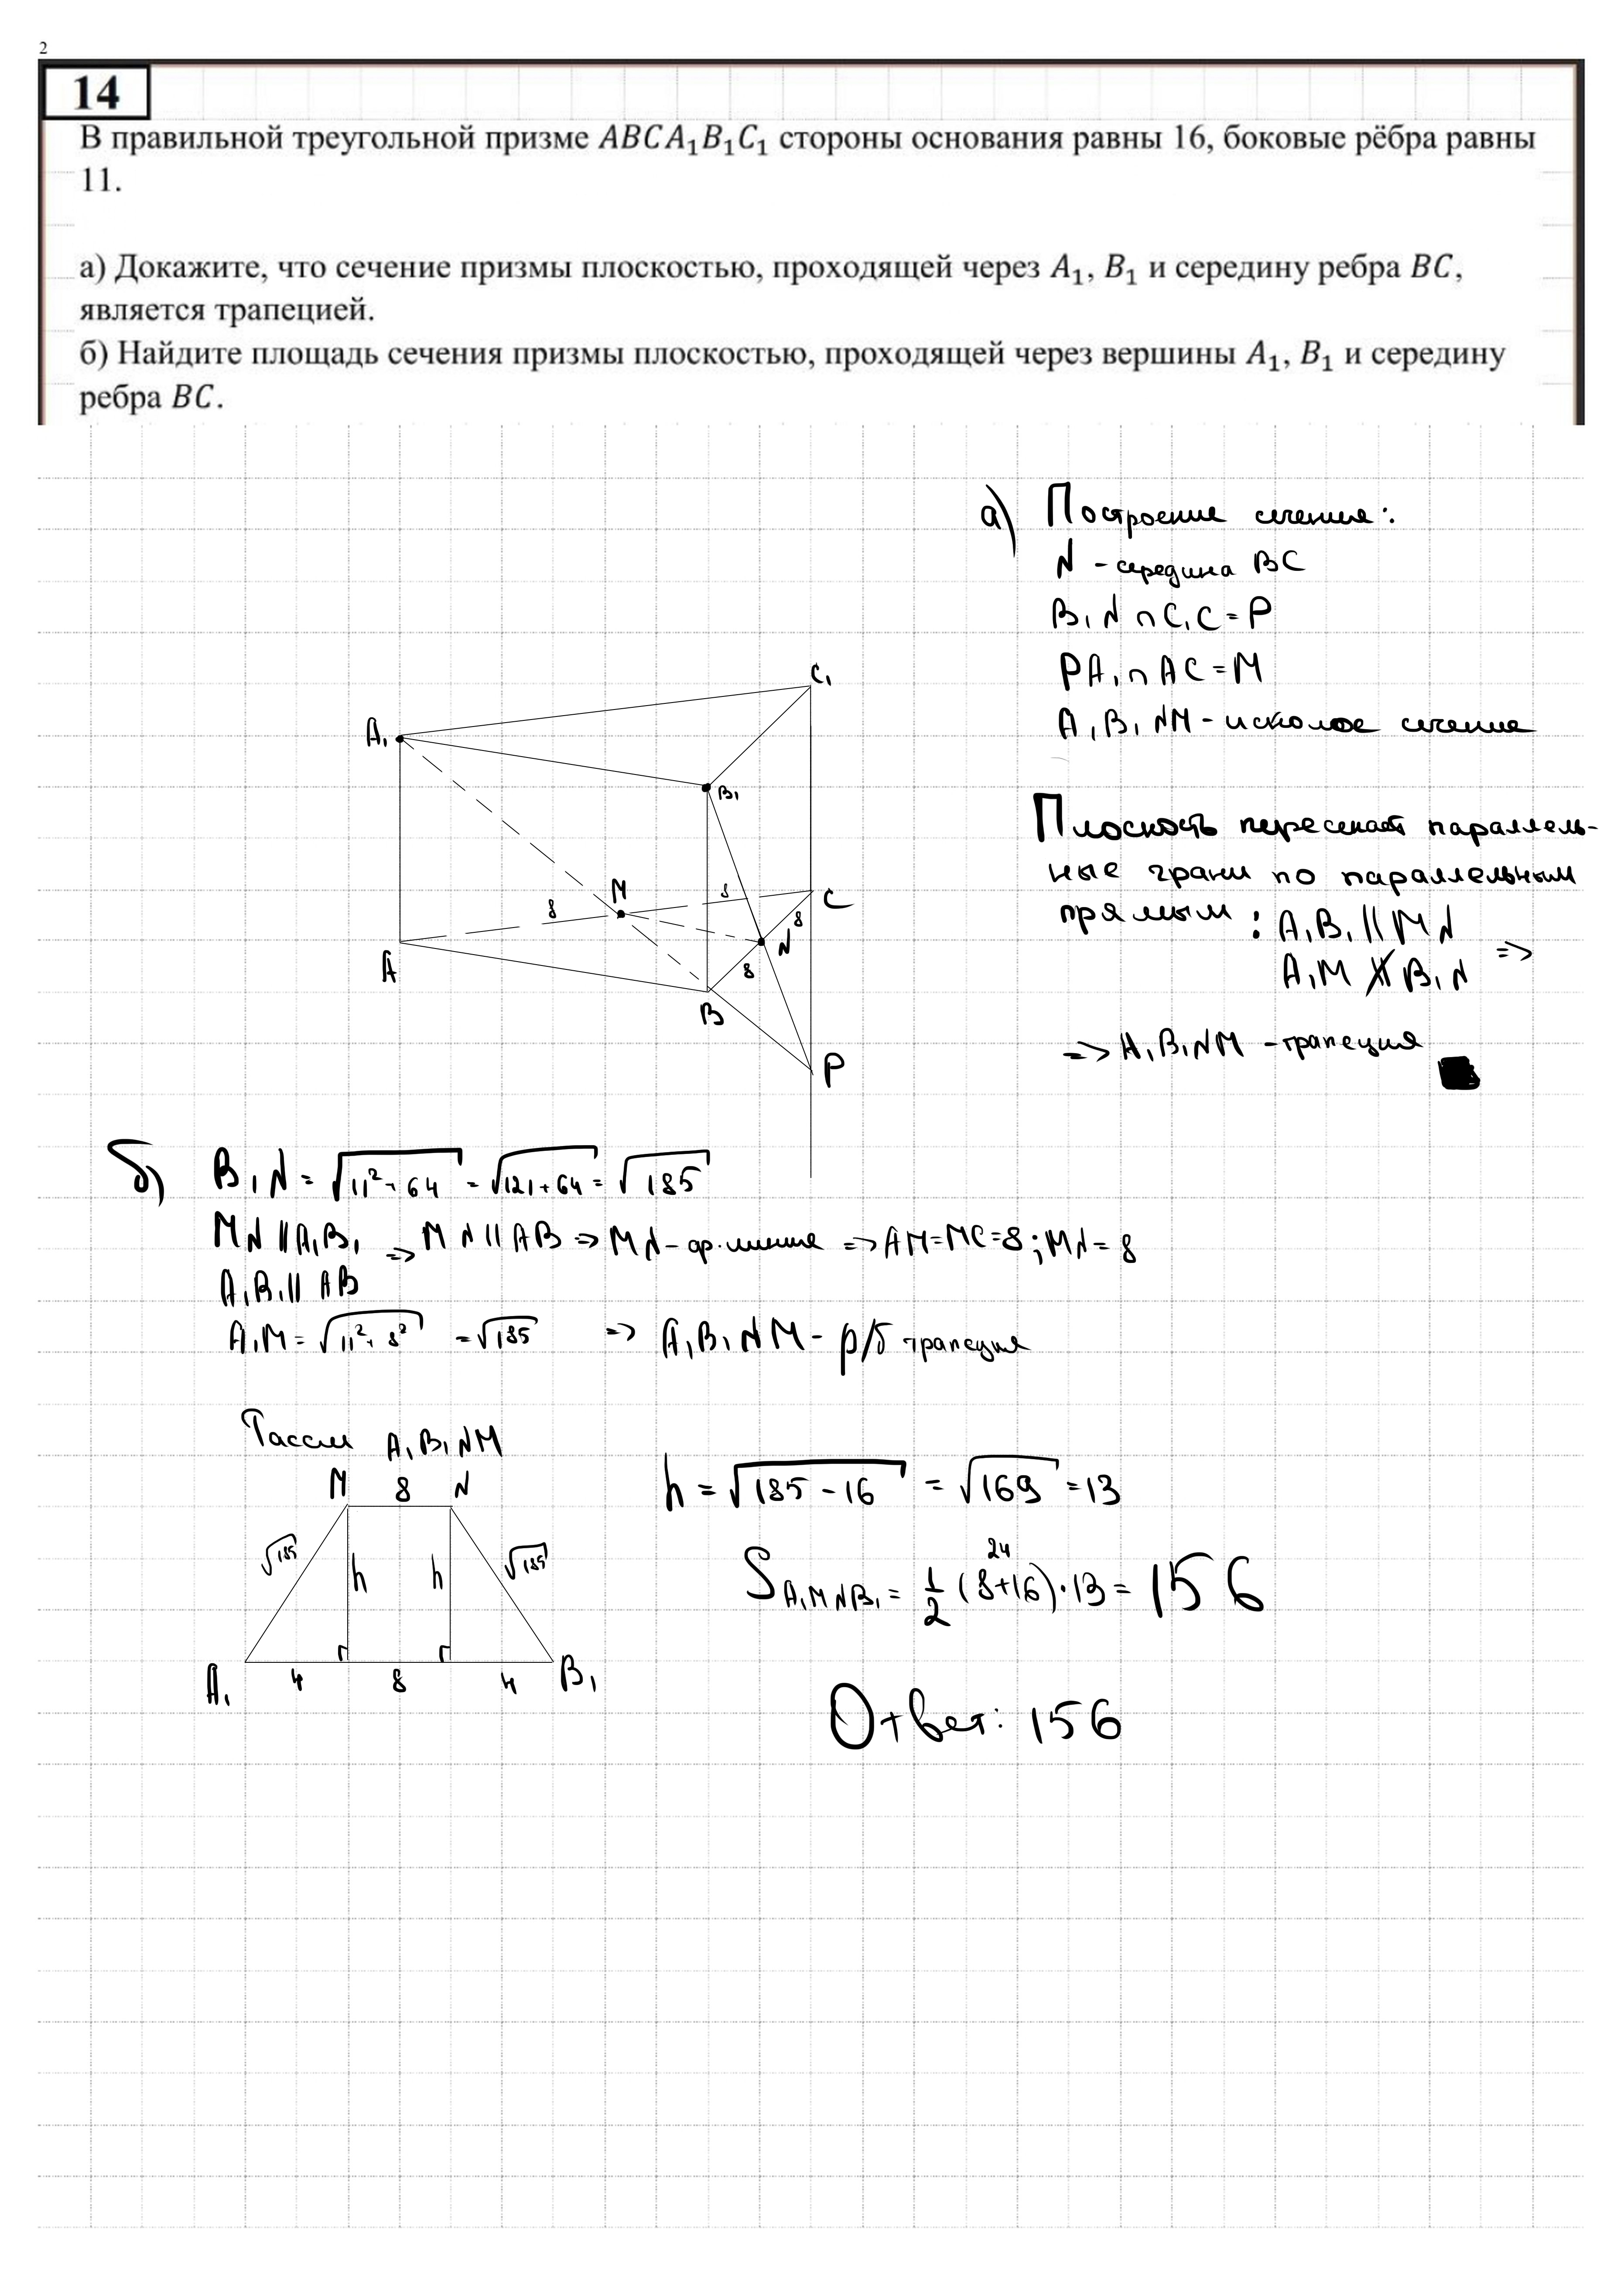 2
14
В правильной треугольной призме ABCA₁B₁C₁ стороны основания равны 16, боковые рёбра равны
11.
а) Докажите, что сечение призмы плоскостью, проходящей через A₁, B₁ и середину ребра BC,
является трапецией.
б) Найдите площадь сечения призмы плоскостью, проходящей через вершины A₁, B₁ и середину
ребра BC.
а) Построение сечения:
N - середина BC
B₁N ∩ C₁C = P
PA₁ ∩ AC = M
A₁B₁NM - искомое сечение
C₁
A₁
B₁
M
8
8
C
8
N
8
A
B
P
Плоскость пересекает параллель-
ные грани по параллельным
прямым: A₁B₁ || MN
A₁M ∦ B₁N =>
=> A₁B₁NM - трапеция
б) B₁N = √(11² + 64) = √(121 + 64) = √185
MN || A₁B₁ => MN || AB => MN - ср. линия => AM = MC = 8; MN = 8
A₁B₁ || AB
A₁M = √(11² + 8²) = √185 => A₁B₁NM - р/б трапеция
Рассм A₁B₁NM
M 8 N
√185 h h √185
A₁ 4 8 4 B₁
h = √(185 - 16) = √169 = 13
24
S A₁MNB₁ = 1/2 (8+16)·13 = 156
Ответ: 156